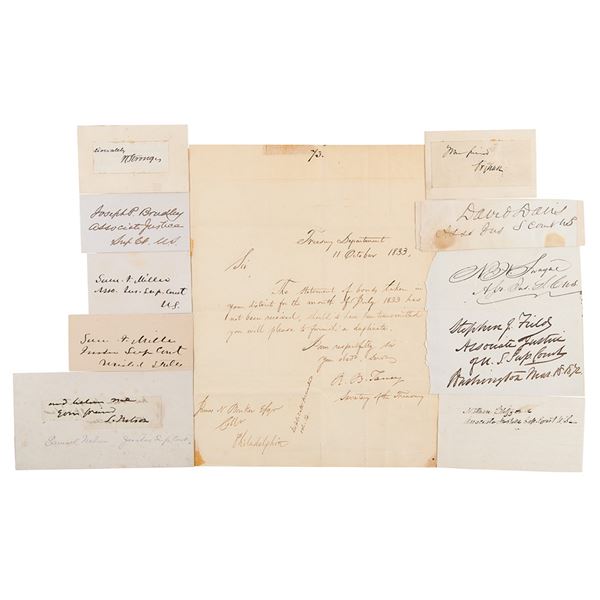 W Strong
Joseph P. Bradley
Associate Justice
Sup Ct. U.S.
Sam F. Miller
Asso. Jus. Sup. Court
U.S.
Sam F. Miller
Justice Sup Court
United States
and believe me
Your friend
S. Nelson
Samuel Nelson Justice Sup Court
73.
Treasury Department
11 October 1833.
Sir,
The Statement of bonds taken in
your district for the month of July 1833 has
not been received, should it have been transmitted
you will please to furnish a duplicate.
I am respectfully Sir
your obdt. Servt
R. B. Taney
Secretary of the Treasury
James N. Barker Esqr
Collr
Philadelphia
Your friend
David Davis
Asso Jus S Court US
N. H. Swayne
Stephen J. Field
Associate Justice
of U. S. Sup Court
Washington Mar. 18. 1872
Nathan Clifford
Associate Justice Sup. Court U.S.